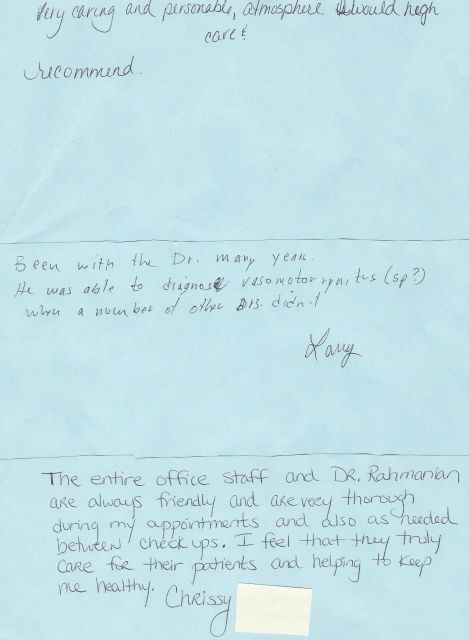 Very caring and personable, atmosphere. I would high
care &
recommend.
Been with the Dr. many years.
He was able to diagnose vasomotor rynitus (sp?)
when a number of other Drs. didn't
Larry
The entire office staff and DR. Rahmanian
are always friendly and are very thorough
during my appointments and also as needed
between check ups. I feel that they truly
care for their patients and helping to keep
me healthy.
Chrissy